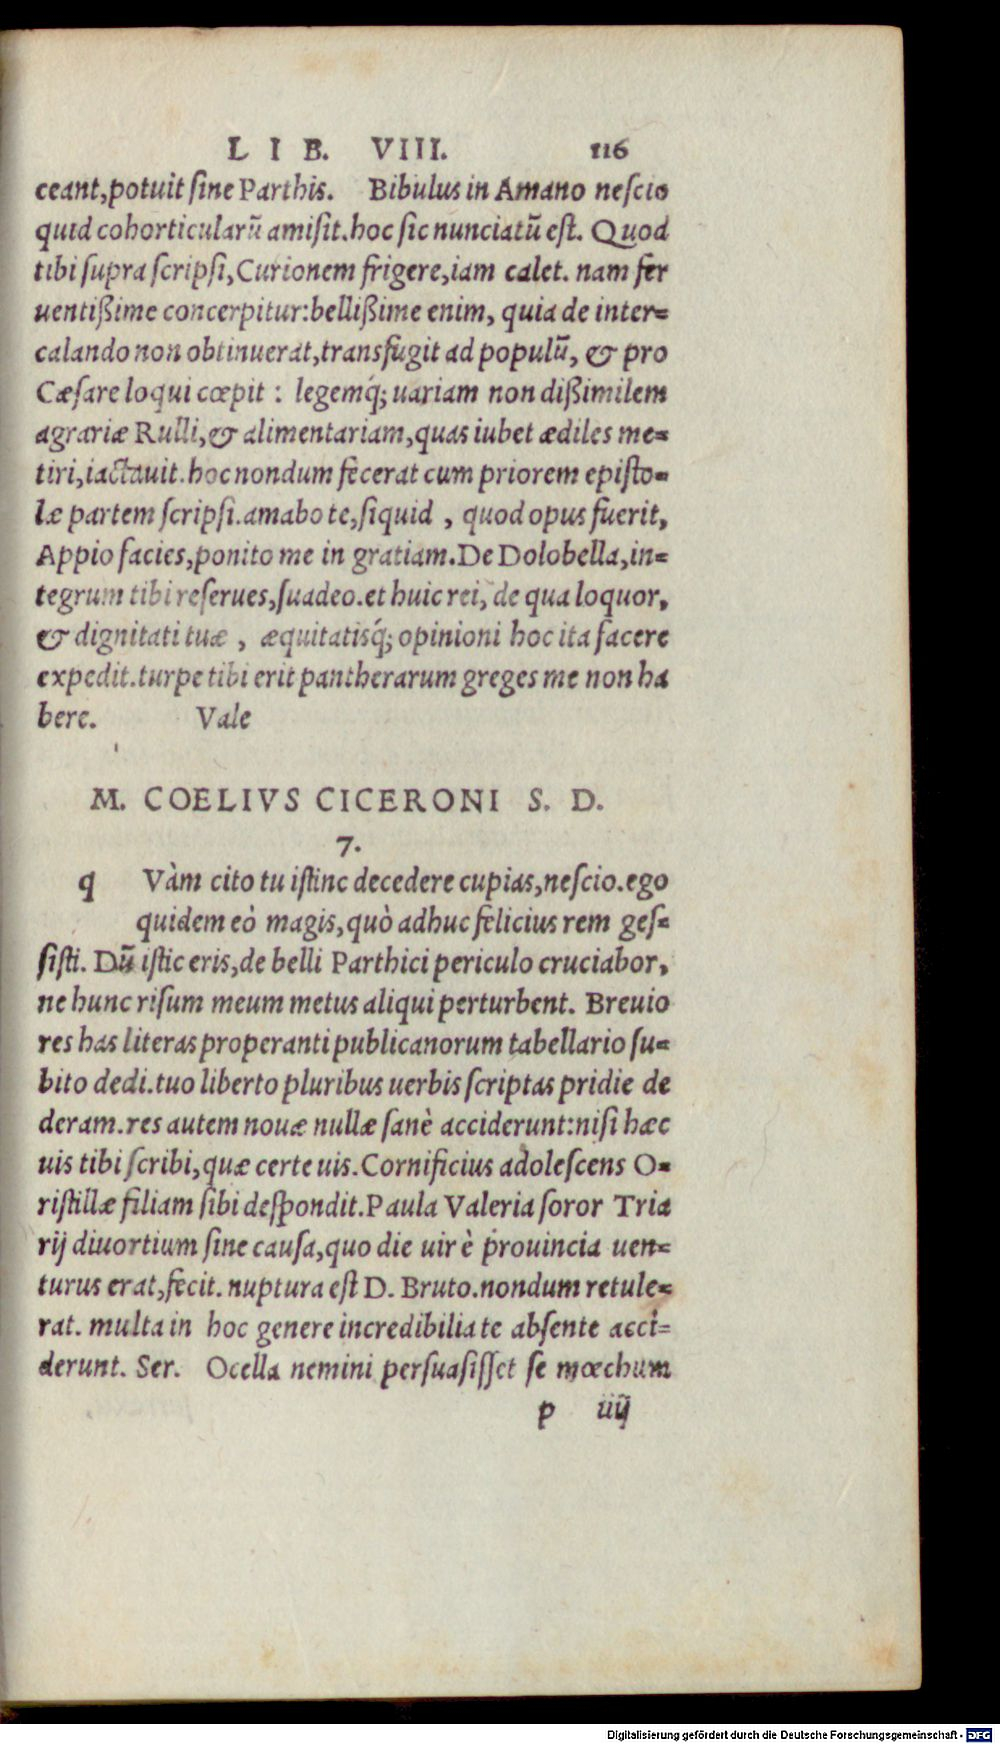 LIB. VIII. 116
ceant, potuit ſine Parthis. Bibulus in Amano neſcio
quid cohorticularū amiſit. hoc ſic nunciatū eſt. Quod
tibi ſupra ſcripſi, Curionem frigere, iam calet. nam fer
uentißime concerpitur: bellißime enim, quia de inter=
calando non obtinuerat, transfugit ad populū, & pro
Cæſare loqui cœpit : legemq́; uariam non dißimilem
agrariæ Rulli, & alimentariam, quas iubet ædiles me=
tiri, iactauit. hoc nondum fecerat cum priorem epiſto=
læ partem ſcripſi. amabo te, ſiquid , quod opus fuerit,
Appio facies, ponito me in gratiam. De Dolobella, in=
tegrum tibi reſerues, ſuadeo. et huic rei, de qua loquor,
& dignitati tuæ , æquitatisq́; opinioni hoc ita facere
expedit. turpe tibi erit pantherarum greges me non ha
bere. Vale
M. COELIVS CICERONI S. D.
7.
q Vàm cito tu iſtinc decedere cupias, neſcio. ego
quidem eò magis, quò adhuc felicius rem geſ=
ſiſti. Dū iſtic eris, de belli Parthici periculo cruciabor,
ne hunc riſum meum metus aliqui perturbent. Breuio
res has literas properanti publicanorum tabellario ſu=
bito dedi. tuo liberto pluribus uerbis ſcriptas pridie de
deram. res autem nouæ nullæ ſanè acciderunt: niſi hæc
uis tibi ſcribi, quæ certe uis. Cornificius adoleſcens O=
riſtillæ filiam ſibi deſpondit. Paula Valeria ſoror Tria
rij diuortium ſine cauſa, quo die uir è prouincia uen=
turus erat, fecit. nuptura eſt D. Bruto. nondum retule=
rat. multa in hoc genere incredibilia te abſente acci=
derunt. Ser. Ocella nemini perſuaſiſſet ſe mœchum
p iiij
Digitalisierung gefördert durch die Deutsche Forschungsgemeinschaft - DFG